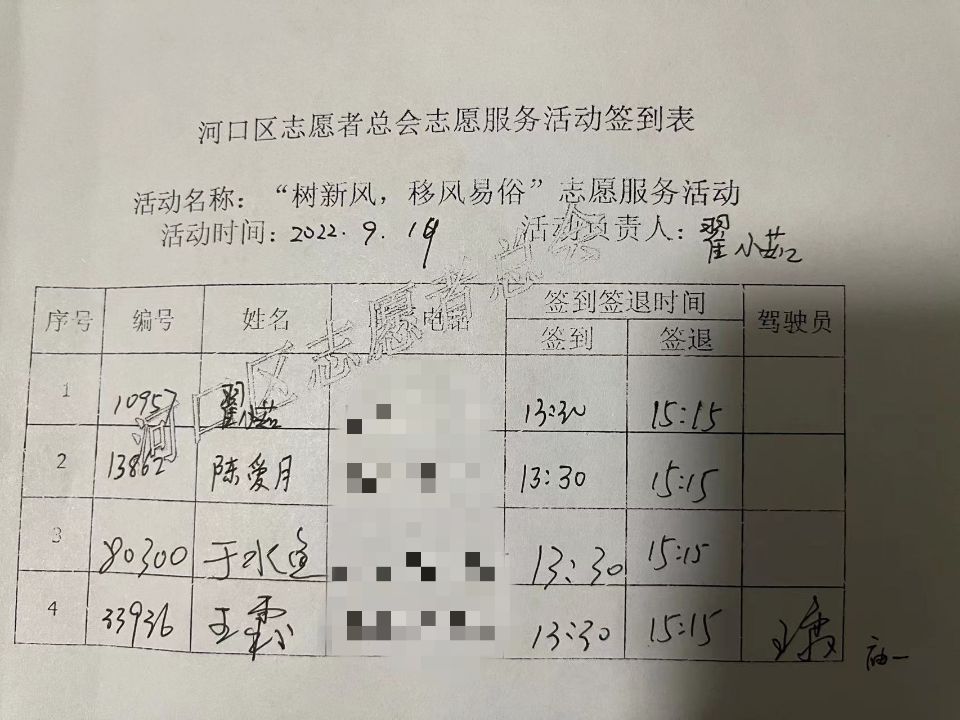 河口区志愿者总会志愿服务活动签到表
活动名称：“树新风，移风易俗”志愿服务活动
活动时间：2022.9.19 活动负责人：翟小茹
河口区志愿者总会
序号 编号 姓名 电话 签到签退时间 驾驶员
签到 签退
1 10957 翟小茹 13:30 15:15
2 13862 陈爱月 13:30 15:15
3 80300 于水鱼 13:30 15:15
4 33936 王霞 13:30 15:15 王霞